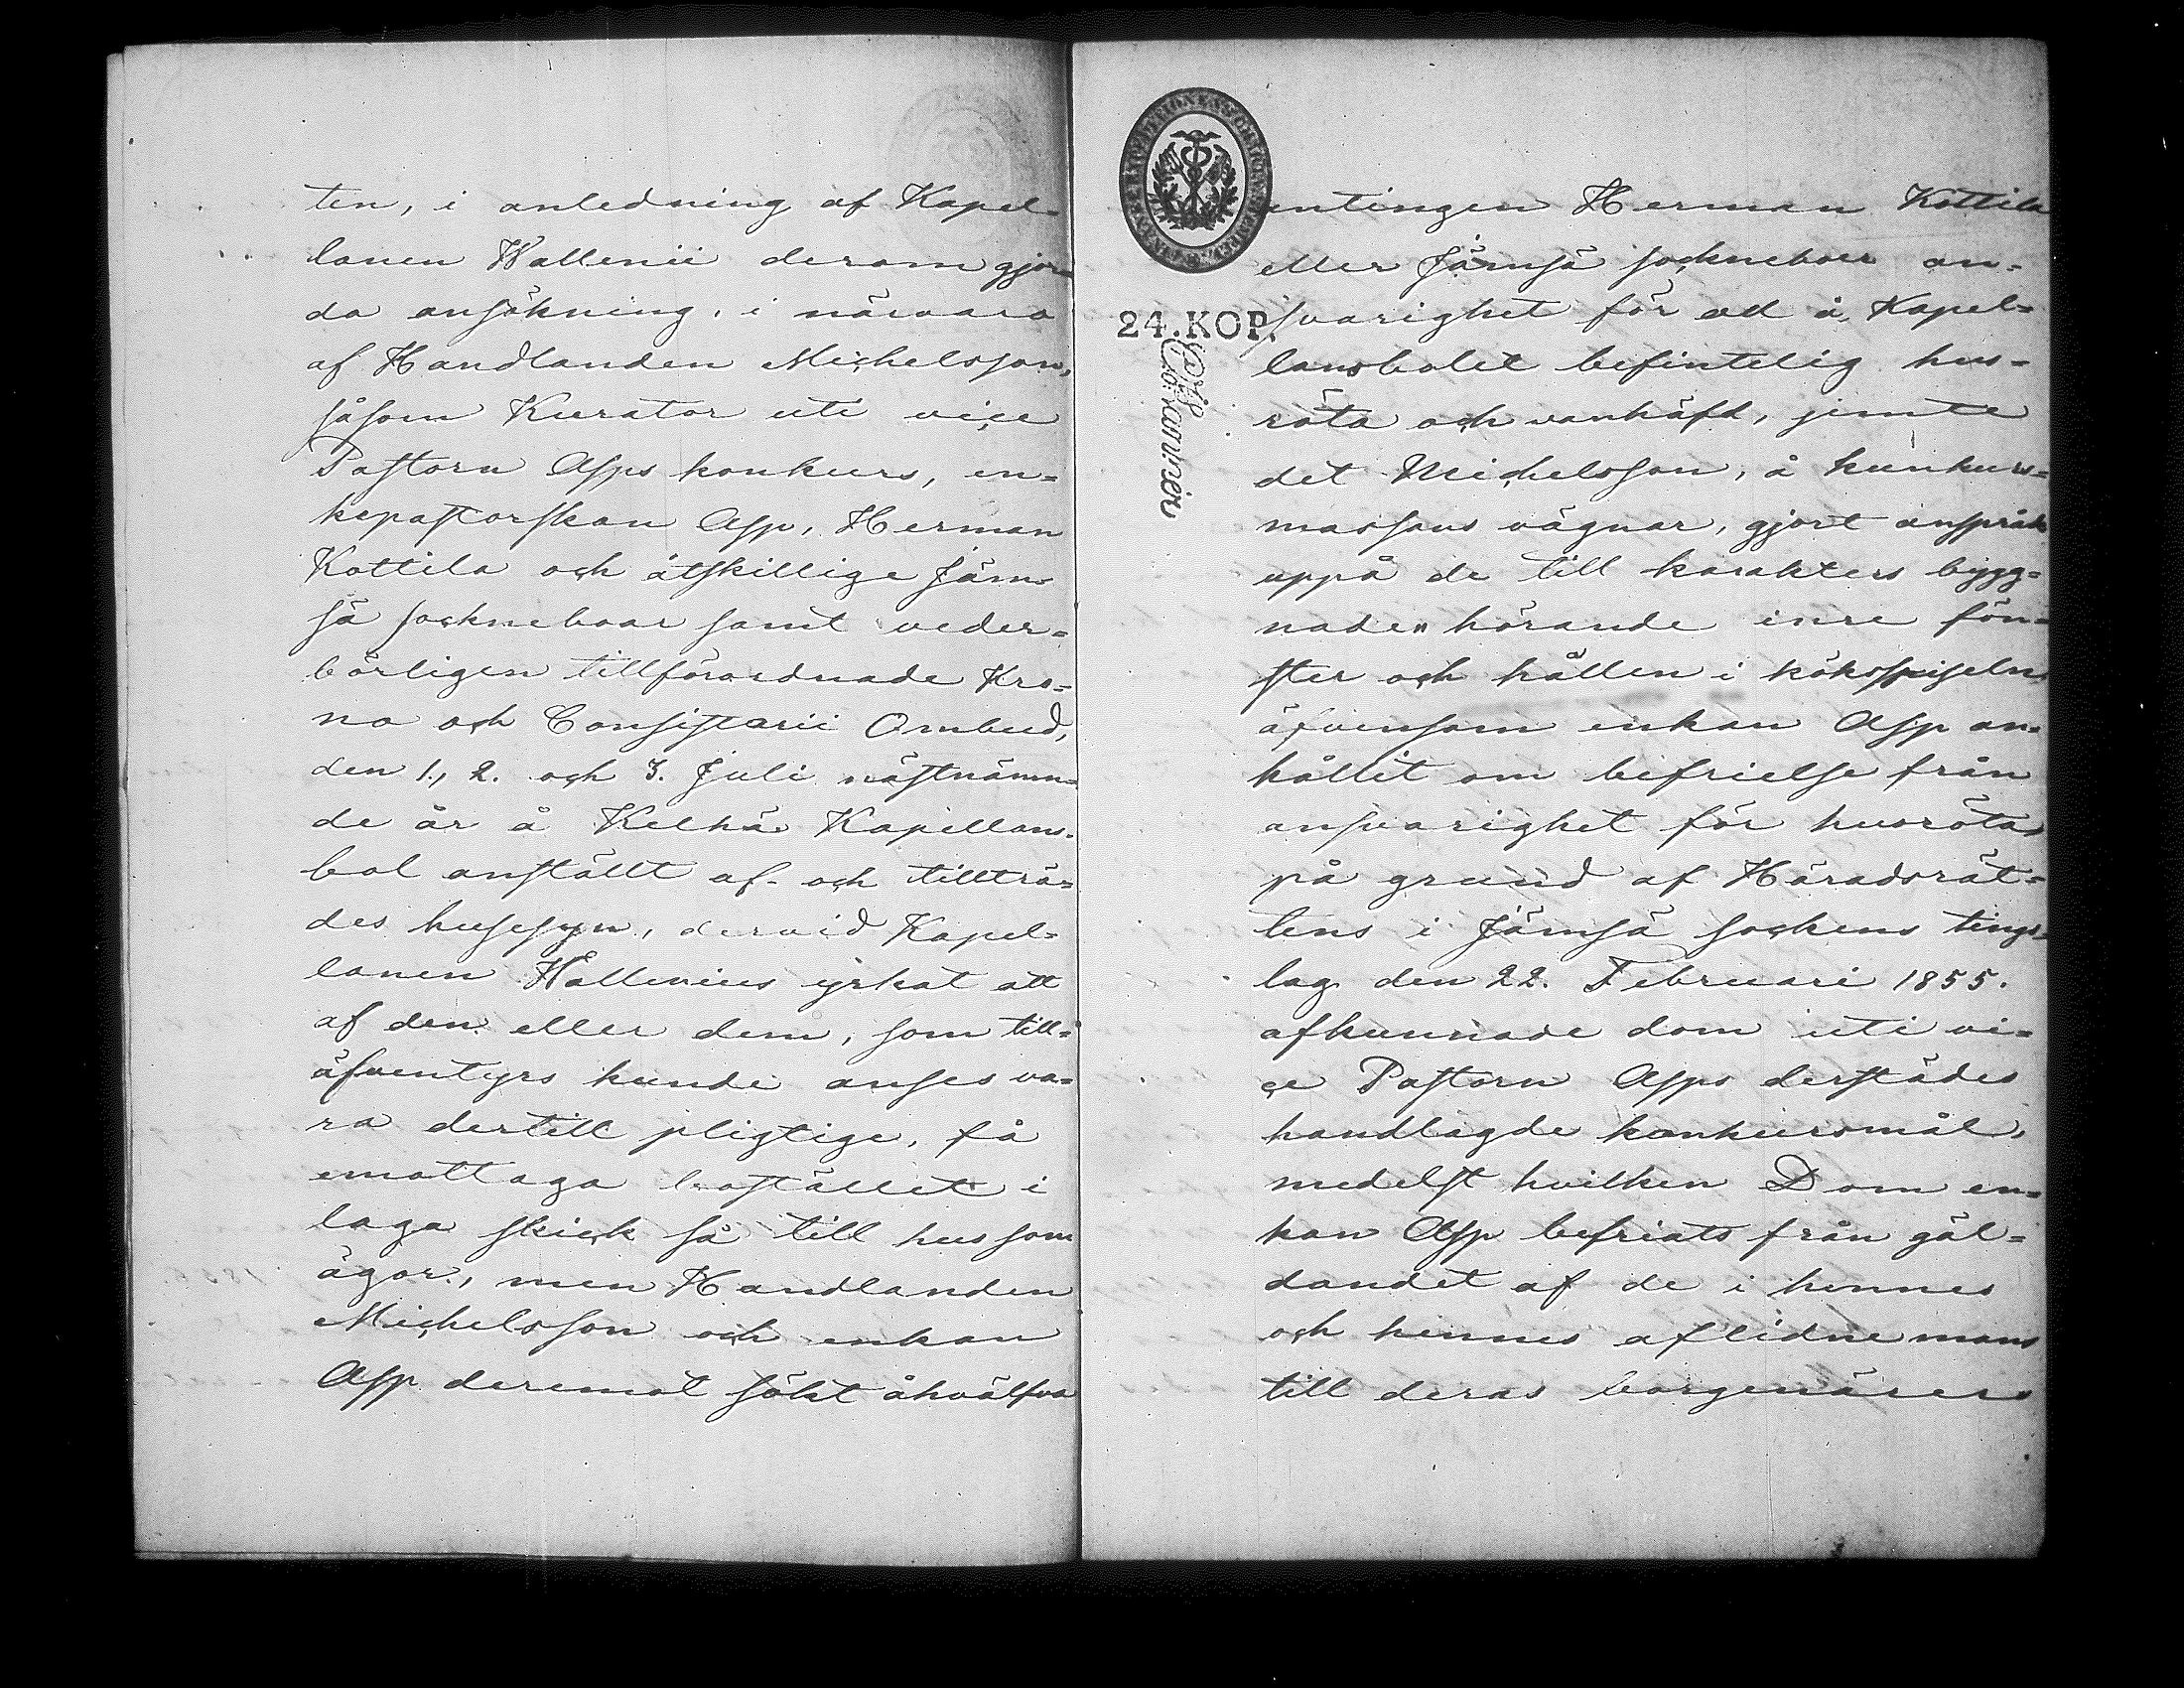 ten, i anledning af Kapel-
lanen Wallenii derom gjor-
da ansökning, i närvaro
af Handlanden Michelsson,
såsom Kurator uti vice
Pastorn Asps konkurs, en-
kepastorskan Asp, Herman
Kottila och åtskillige Jäm-
sä sockneboar samt veder-
börligen tillförordnade Kro-
no och Consistorii Ombud,
den 1., 2. och 3. Juli nästnämn-
de år å Kelhä Kapellans-
bol anställt af- och tillträ-
des husesyn, dervid Kapel-
lanen Wallenius yrkat att
af den eller dem, som till-
äfventyrs kunde anses va-
ra dertill pligtige, få
emottaga bostället i
laga skick så till hus som
ägor, men Handlanden
Michelsson och enkan
Asp deremot sökt åhvälfva
24.KOP.
antingen Herman Kottila
eller Jämsä sockneboer an-
svarighet för all å Kapel-
lansbolet befintelig hus-
röta och vanhäfd, jemte
det Michelsson, å konkurs-
massans vägnar, gjort anspråk
uppå de till karakters bygg-
naden hörande inre fön-
ster och hällen i köksspiseln
äfvensom enkan Asp an-
hållit om befrielse från
ansvarighet för husröta
på grund af Häradsrät-
tens i Jämsä sockens tings-
lag den 22. Februari 1855.
afkunnade dom uti vi-
ce Pastorn Asps derstädes
handlagde konkursmål,
medelst hvilken Dom en-
kan Asp befriats från gäl-
dandet af de i hennes
och hennes aflidne mans
till deras borgenärer